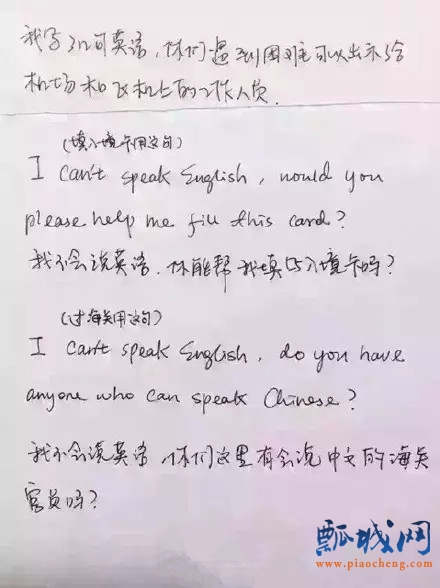 我写了几句英语，你们遇到困难可以出示给
机场和飞机上的工作人员.
(填入境卡用这句)
I can't speak English, would you
please help me fill this card?
我不会说英语，你能帮我填写入境卡吗?
(过海关用这句)
I can't speak English, do you have
anyone who can speak Chinese?
我不会说英语，你们这里有会说中文的海关
官员吗?
瓢城网
www.piaocheng.com